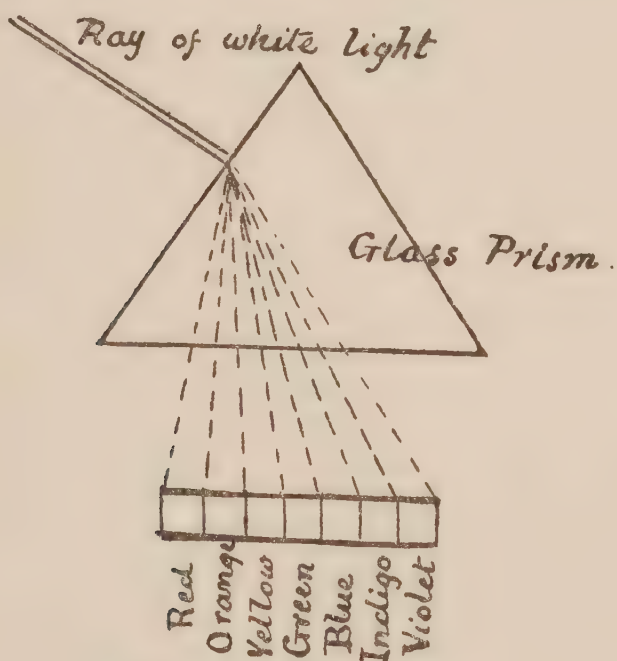 Ray of white light
Glass Prism.
Red
Orange
Yellow
Green
Blue
Indigo
Violet